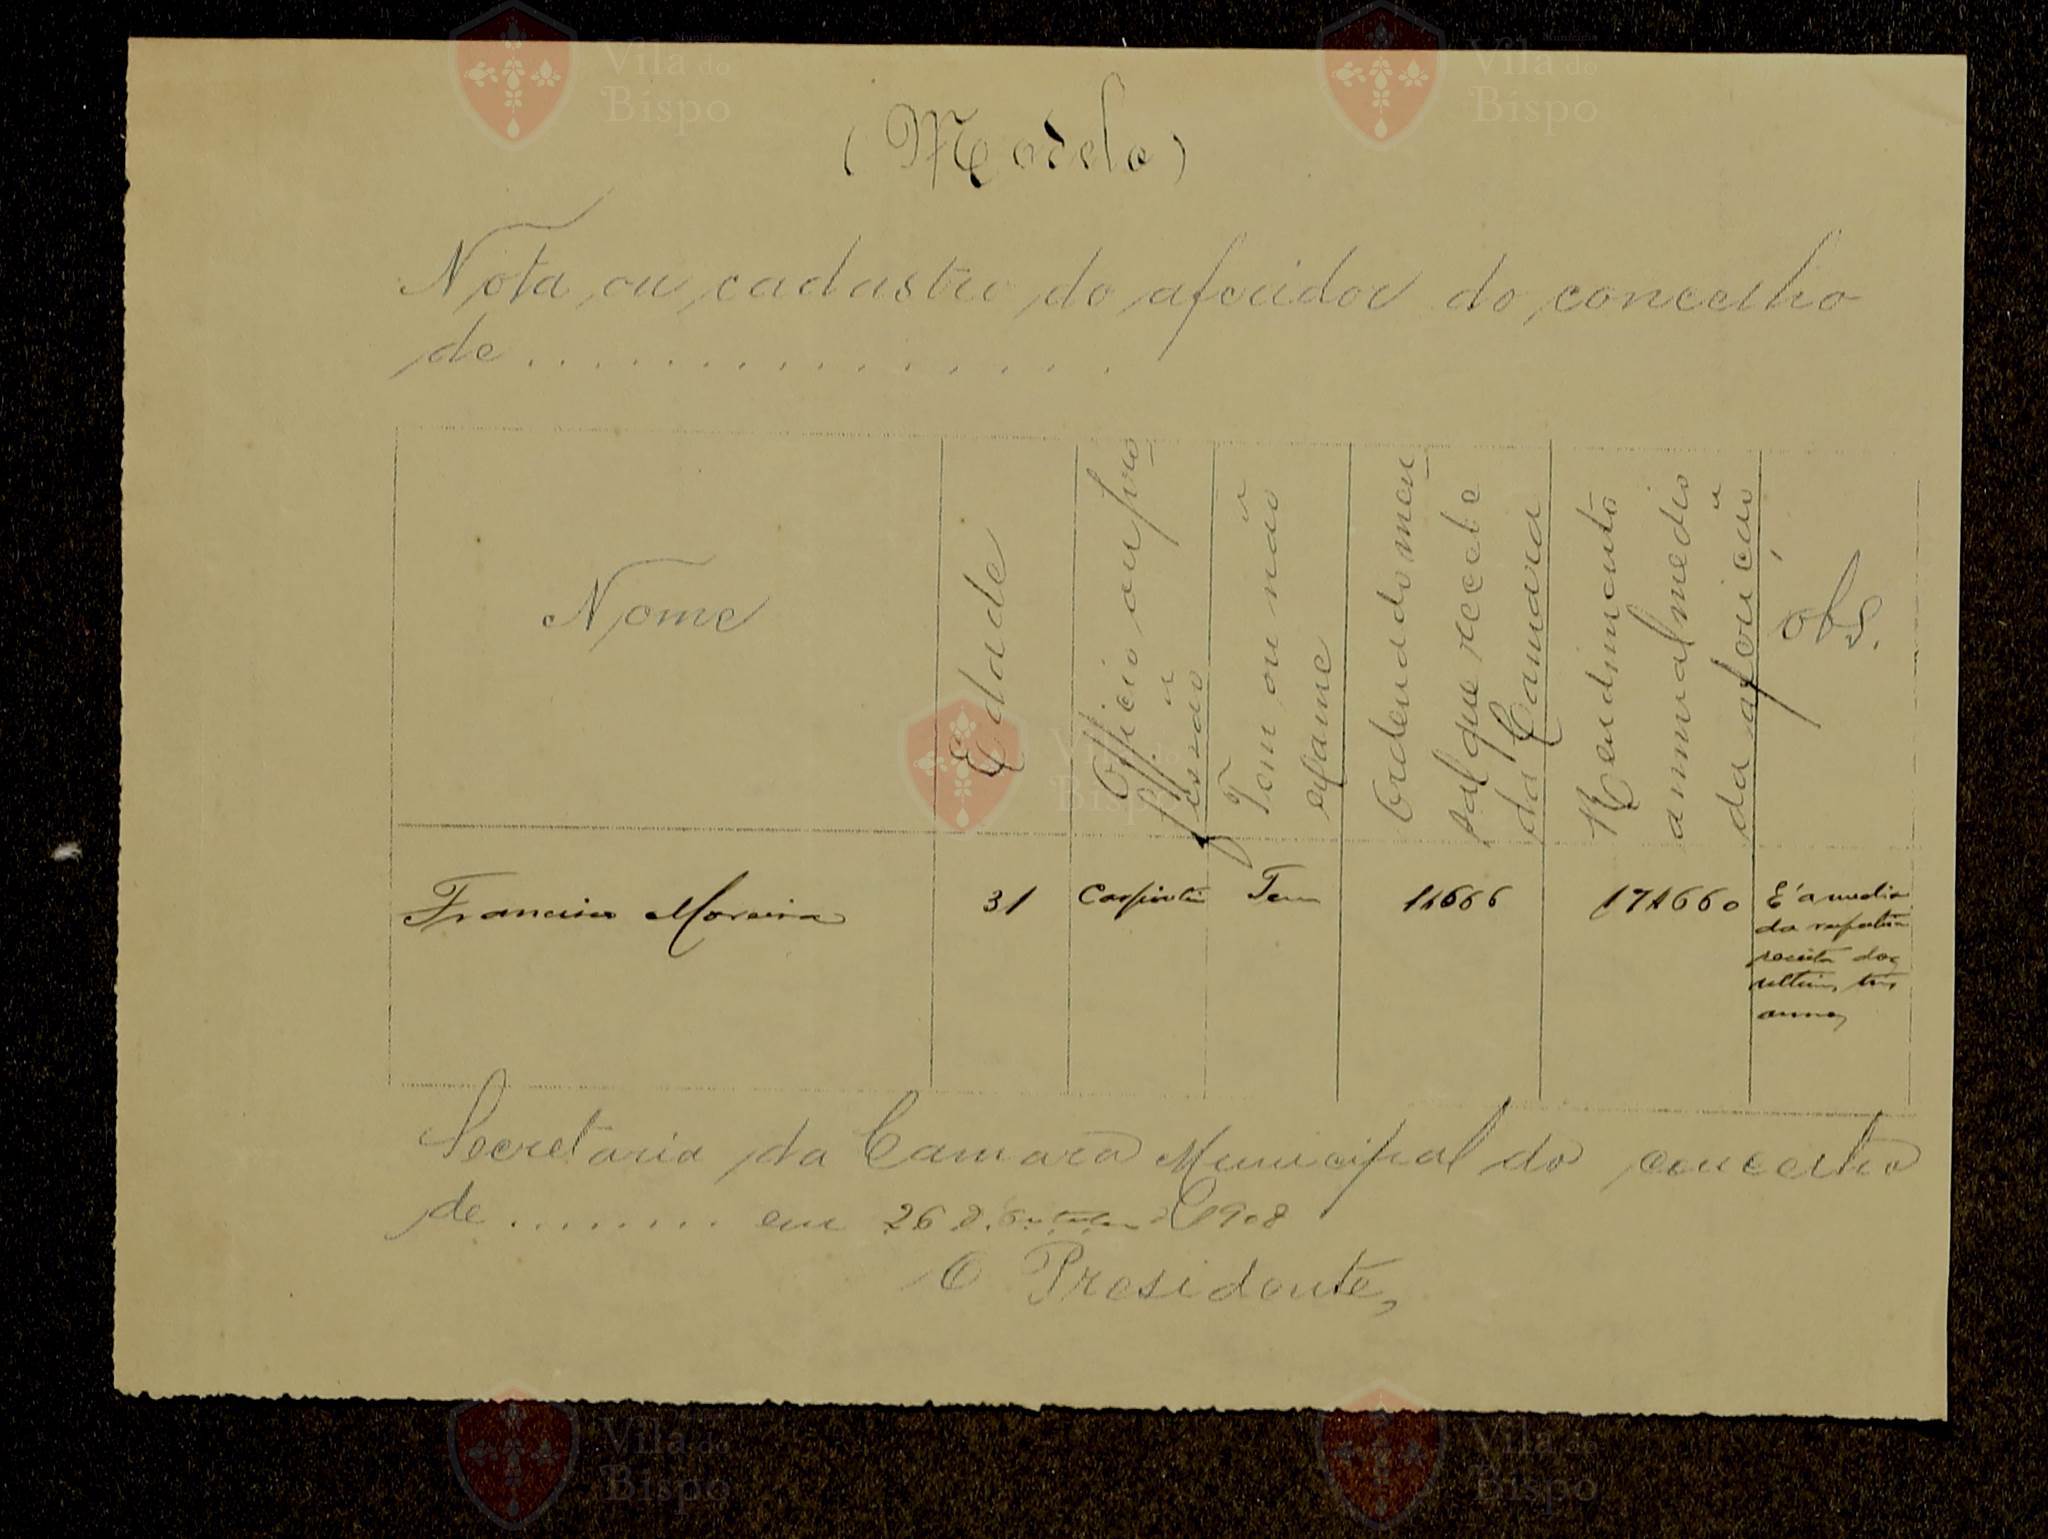 (Modelo)
Nota ou cadastro do aferidor do concelho
de . . . . . . . . . . . . . . . . .
Nome
Edade
Officio ou pro-
fissão
Tem ou não
exame
Ordenado men-
sal que recebe
da Camara
Rendimento
annual medio
da aferição
obs.
Francisco Moreira
31
Carpinteiro
Tem
1$666
17$660
É a media
da respectiva
receita dos
ultimos tres
annos
Secretaria da Camara Municipal do concelho
de ........ em 26 d'outubro de 1908
O Presidente,
Município
Vila do
Bispo
Município
Vila do
Bispo
Vila do
Bispo
Vila do
Bispo
Vila do
Bispo